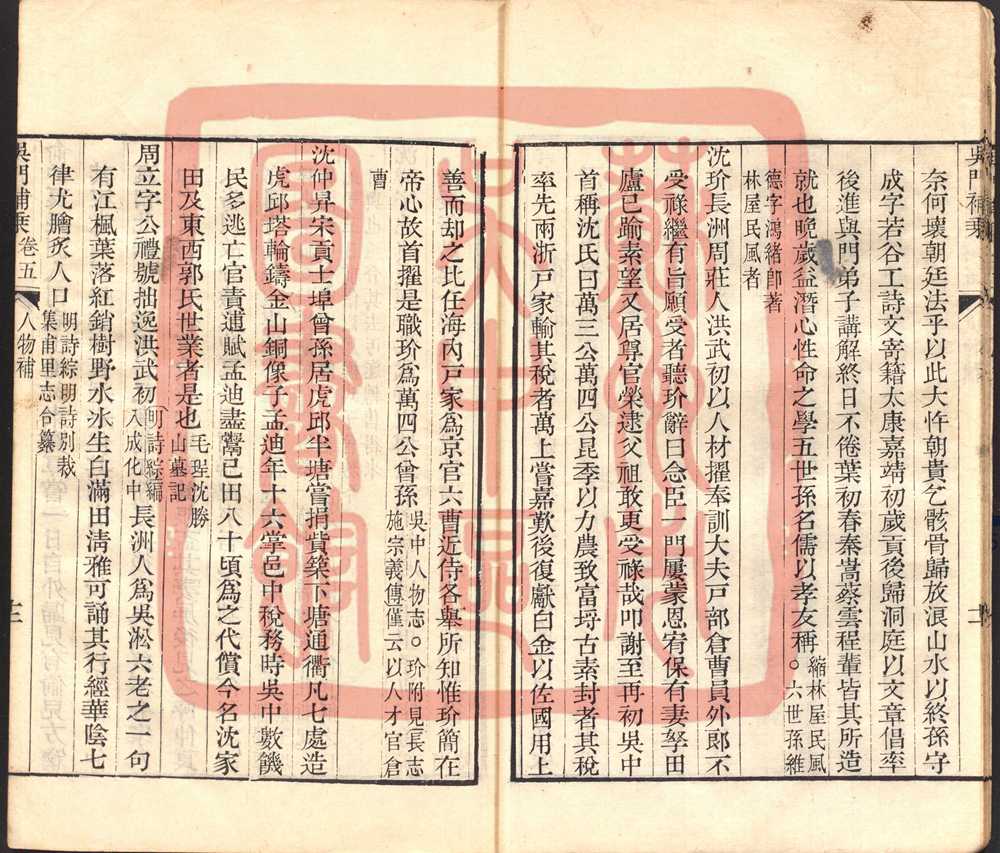 吳門補乘
奈何壞朝廷法乎以此大忤朝貴乞骸骨歸放浪山水以終孫守
成字若谷工詩文寄籍太康嘉靖初歲貢後歸洞庭以文章倡率
後進與門弟子講解終日不倦葉初春秦嵩蔡雲程輩皆其所造
就也晚歲益潛心性命之學五世孫名儒以孝友稱
縮林屋民風
○六世孫維
德字鴻緒卽著
林屋民風者
沈玠長洲周莊人洪武初以人材擢奉訓大夫戸部倉曹員外郎不
受祿繼有旨願受者聽玠辭曰念臣一門屢蒙恩宥保有妻孥田
廬已踰素望又居尊官榮逮父祖敢更受祿哉叩謝至再初吳中
首稱沈氏曰萬三公萬四公昆季以力農致富埒古素封者其稅
率先兩浙戸家輸其稅者萬上嘗嘉歎後復獻白金以佐國用上
善而却之比任海內戸家爲京官六曹近侍各舉所知惟玠簡在
帝心故首擢是職玠爲萬四公曾孫
吳中人物志○玠附見長志
施宗義傳僅云以人才官倉
曹
沈仲昇宋貢士埠曾孫居虎邱半塘嘗捐貲築下塘通衢凡七處造
虎邱塔輪鑄金山銅像子孟迪年十六掌邑中稅務時吳中數饑
民多逃亡官責逋賦孟迪盡鬻已田八十頃爲之代償今名沈家
田及東西郭氏世業者是也
毛珵沈勝
山墓記
周立字公禮號拙逸洪武初
明詩綜編
入成化中
長洲人爲吳淞六老之一句
有江楓葉落紅銷樹野水冰生白滿田淸雅可誦其行經華陰七
律尤膾炙人口
明詩綜明詩別裁
集甫里志合纂
吳門補乘
卷五
人物補